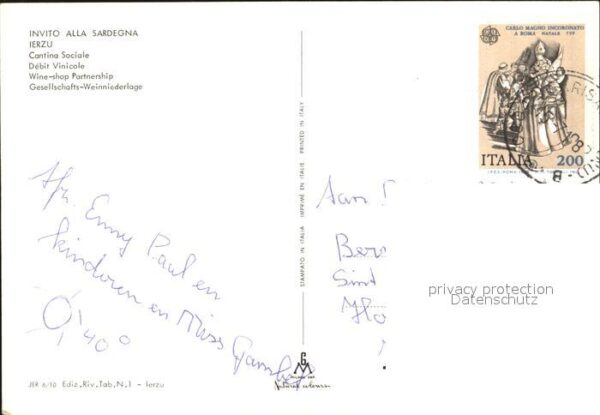 INVITO ALLA SARDEGNA
IERZU
Cantina Sociale
Débit Vinicole
Wine-shop Partnership
Gesellschafts-Weinniederlage
CARLO MAGNO INCORONATO
A ROMA NATALE
ITALIA 200
Enny Paul en
kinderen en Miss
40°
STAMPATO IN ITALIA IMPRIMÉ EN ITALIE PRINTED IN ITALY
Aan
Sint
privacy protection
Datenschutz
JER 6/10 Ediz. Riv. Tab. N. 1 - Ierzu